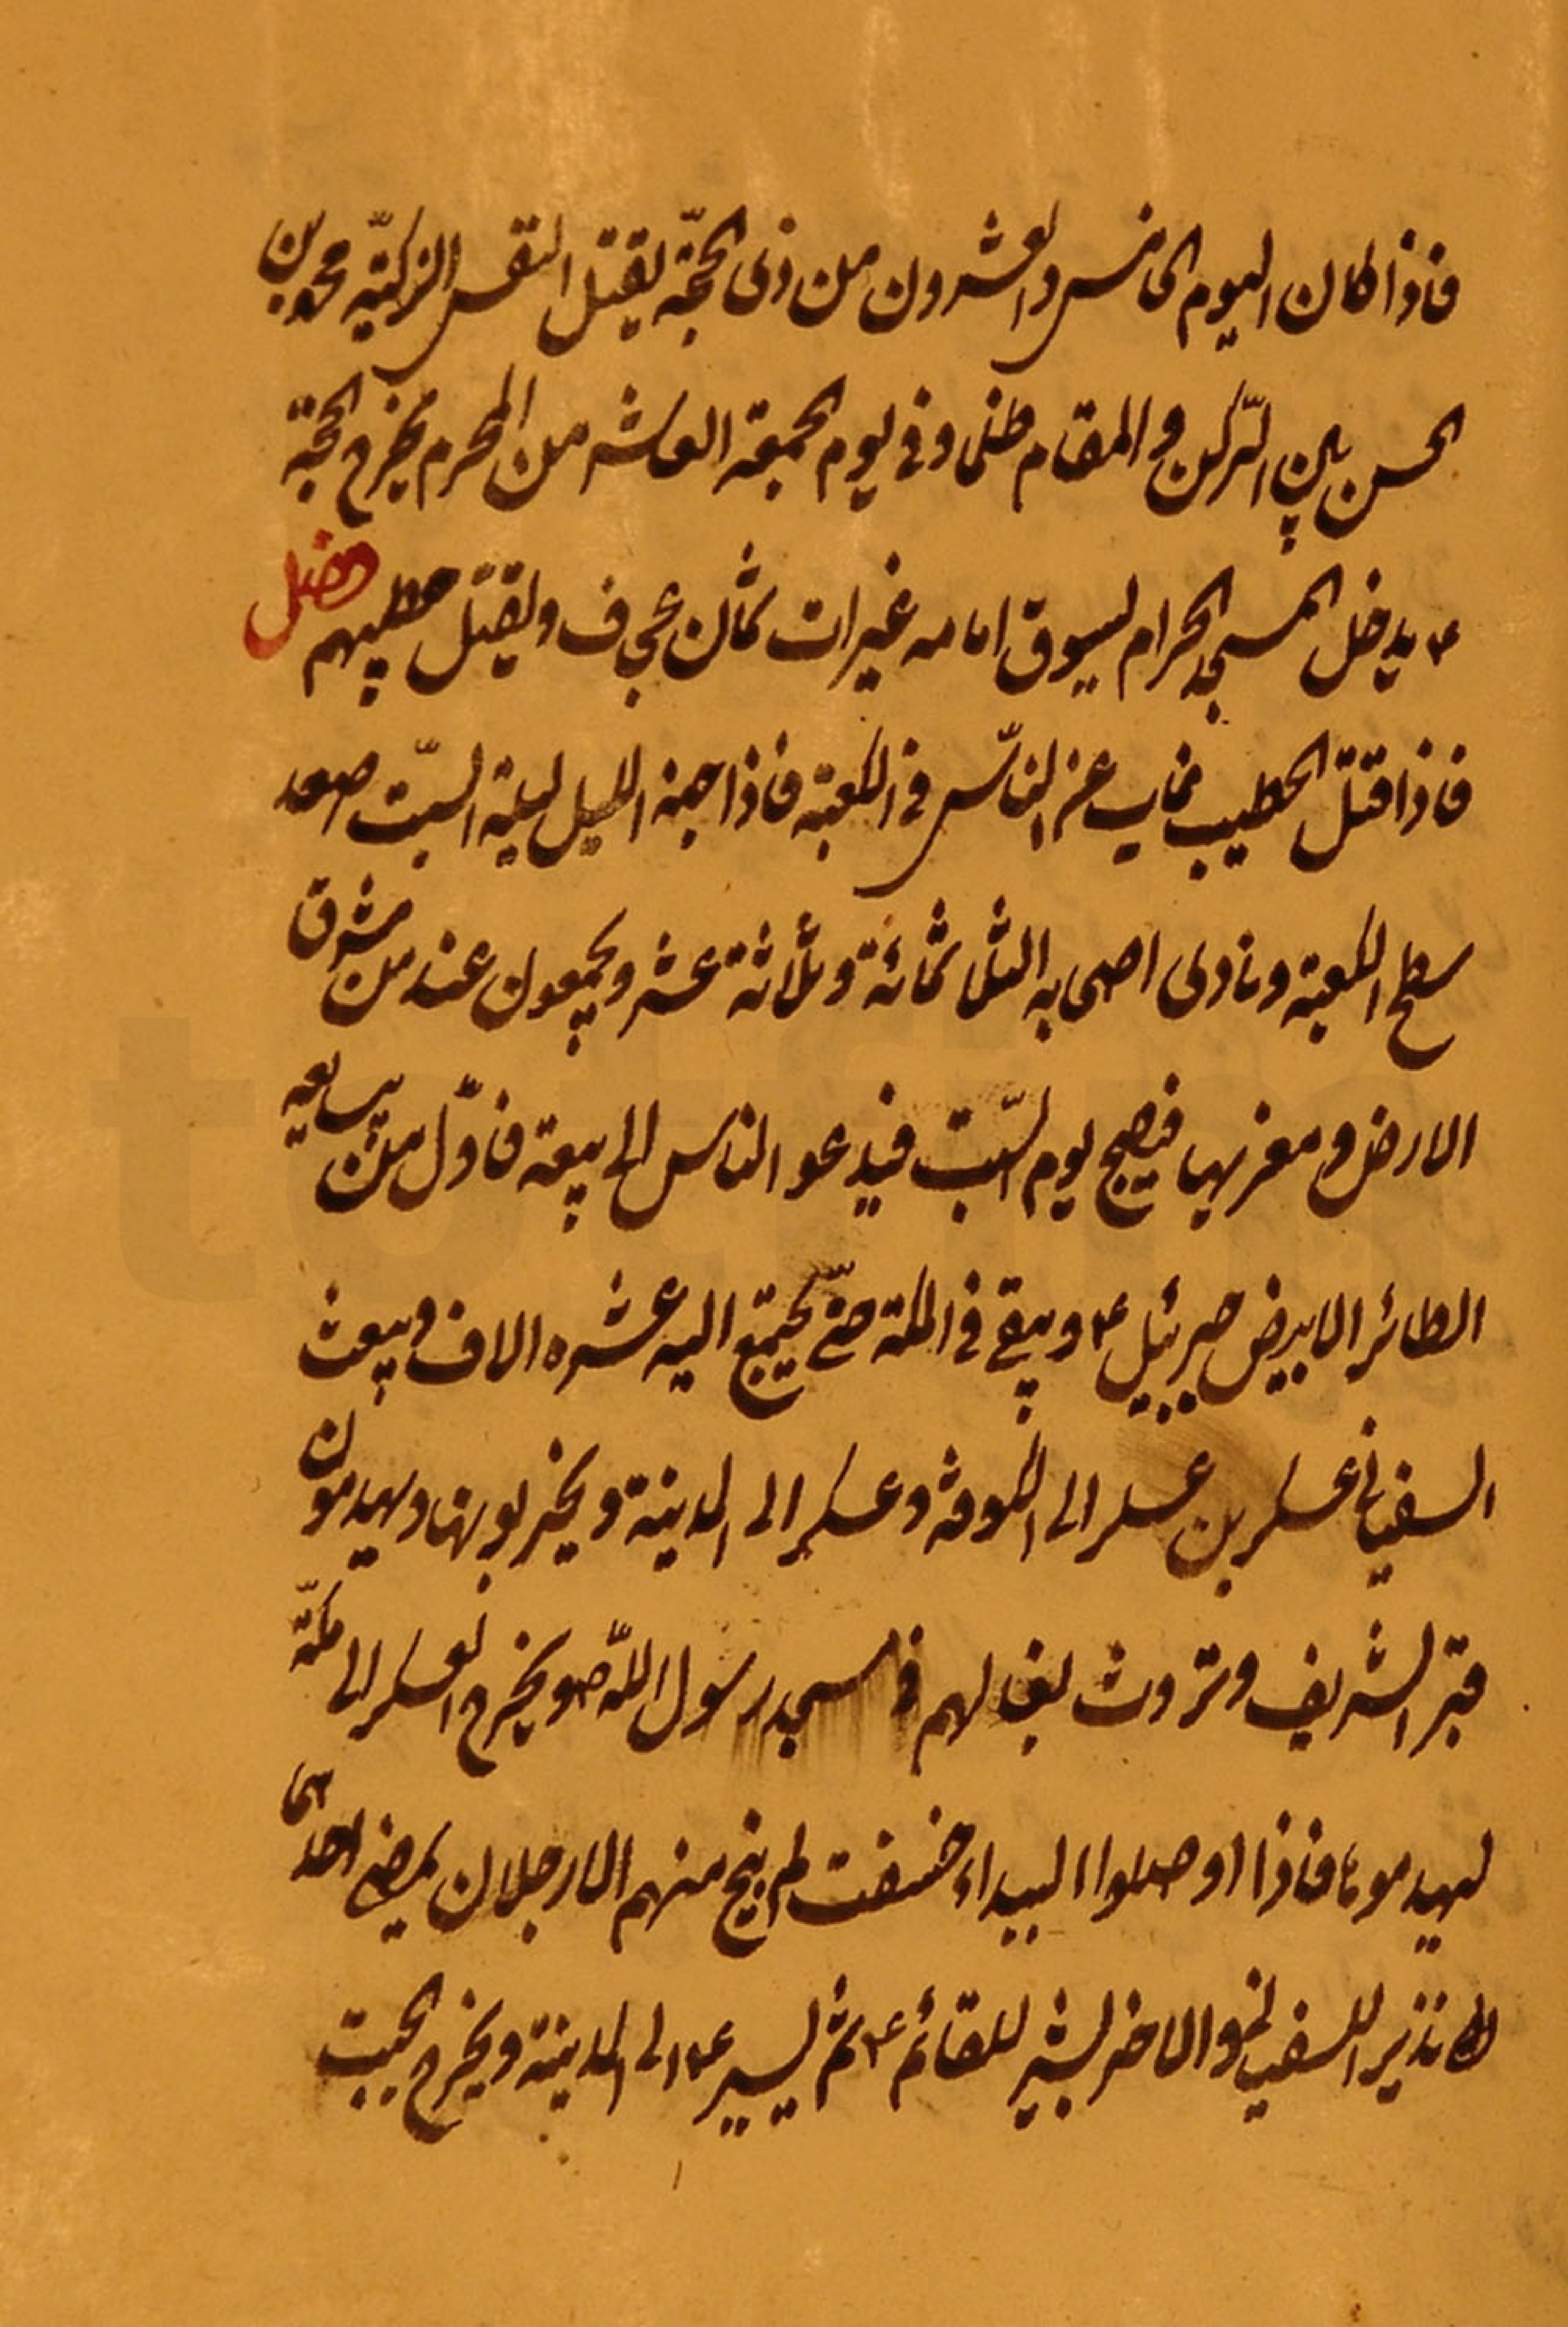 فاذا كان اليوم الخامس والعشرون من ذى الحجّة يقتل النفس الزكيّه محمد بن
الحسن بين الرّكن و المقام ظلما وفى يوم الجمعة العاشر من المحرم يخرج الحجة
ع يدخل المسجد الحرام ليسوق امامه غيرات ثمان عجاف ويقتل خطيبهم
فاذا قتل الخطيب غاب عن النّاس فى الكعبة فاذا جنه الليل ليلة السّبت صعد
سطح الكعبة ونادى اصحابه الثلثمائة وثلاثة عشر ويجمعون عنده من مشرق
الارض و مغربها فيصبح يوم السّبت فيدعو الناس الى بيعة فاوّل من يبايعه
الطائر الابيض جبرئيل ع ويبقى فى المكة حتّى يجتمع اليه عشره الاف ويبعث
السفيانى عسكرين عسكر الى الكوفة وعسكر الى المدينة ويخربونها ويهدمون
قبر الشريف وتروث بغالهم فى مسجد رسول اللّه ص ويخرج العسكر الى مكّة
ليهدموها فاذا اوصلوا البيداء خسفت لم ينج منهم الا رجلان يمضى احدهما
نذير للسفيانى والاخر بشير للقائم ع ثم يسير ع الى المدينة ويخرج الجبت